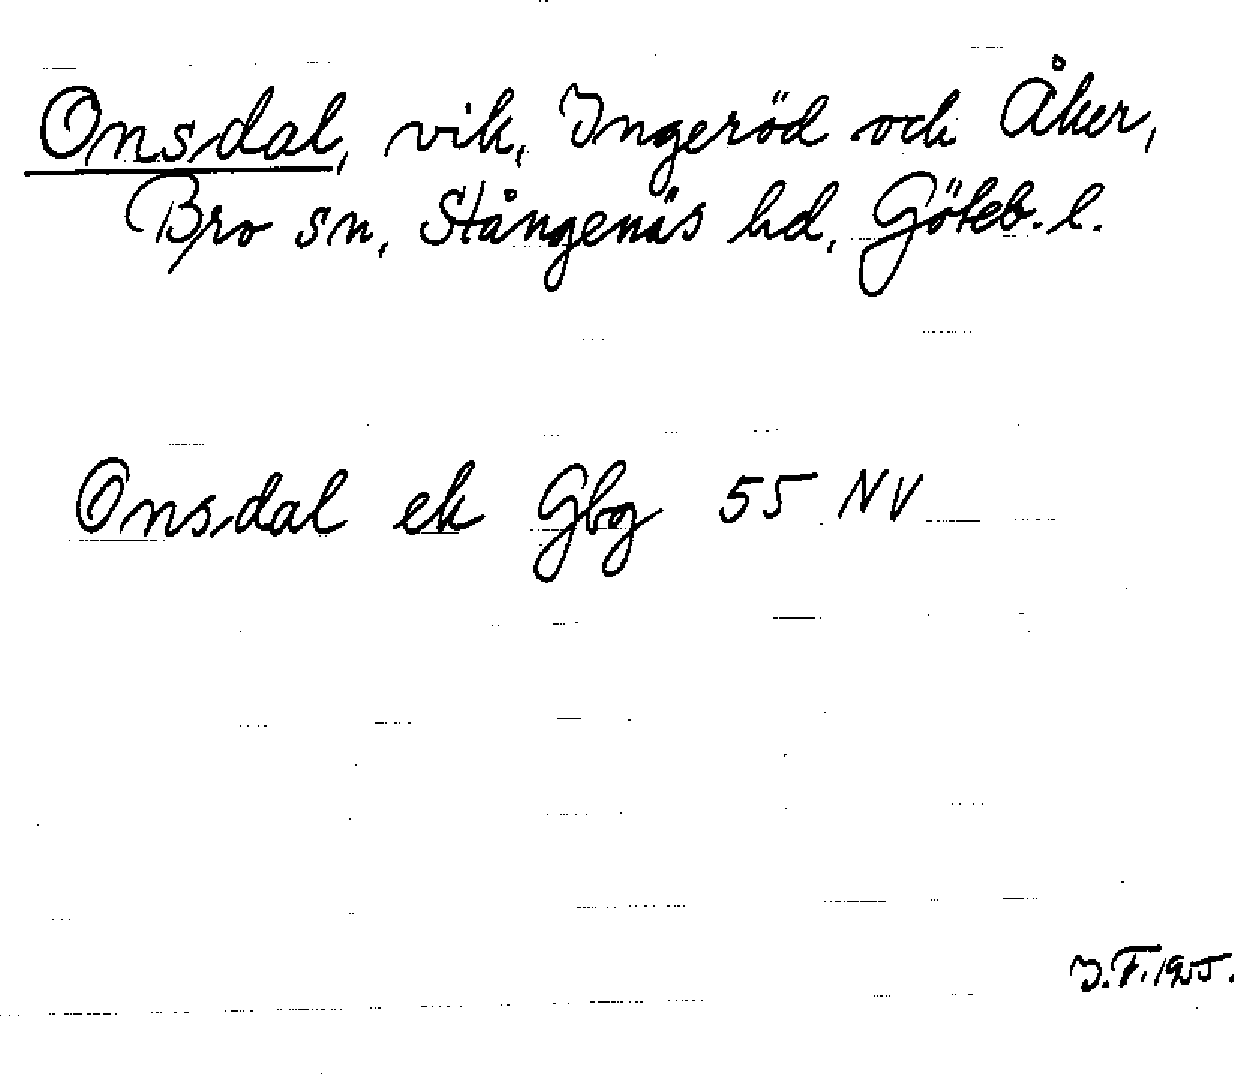 Onsdal, vik, Ingeröd och Åker,
Bro sn, Stångenäs hd, Göteb. l.
Onsdal ek Gbg 55 NV
I.F. 1925.